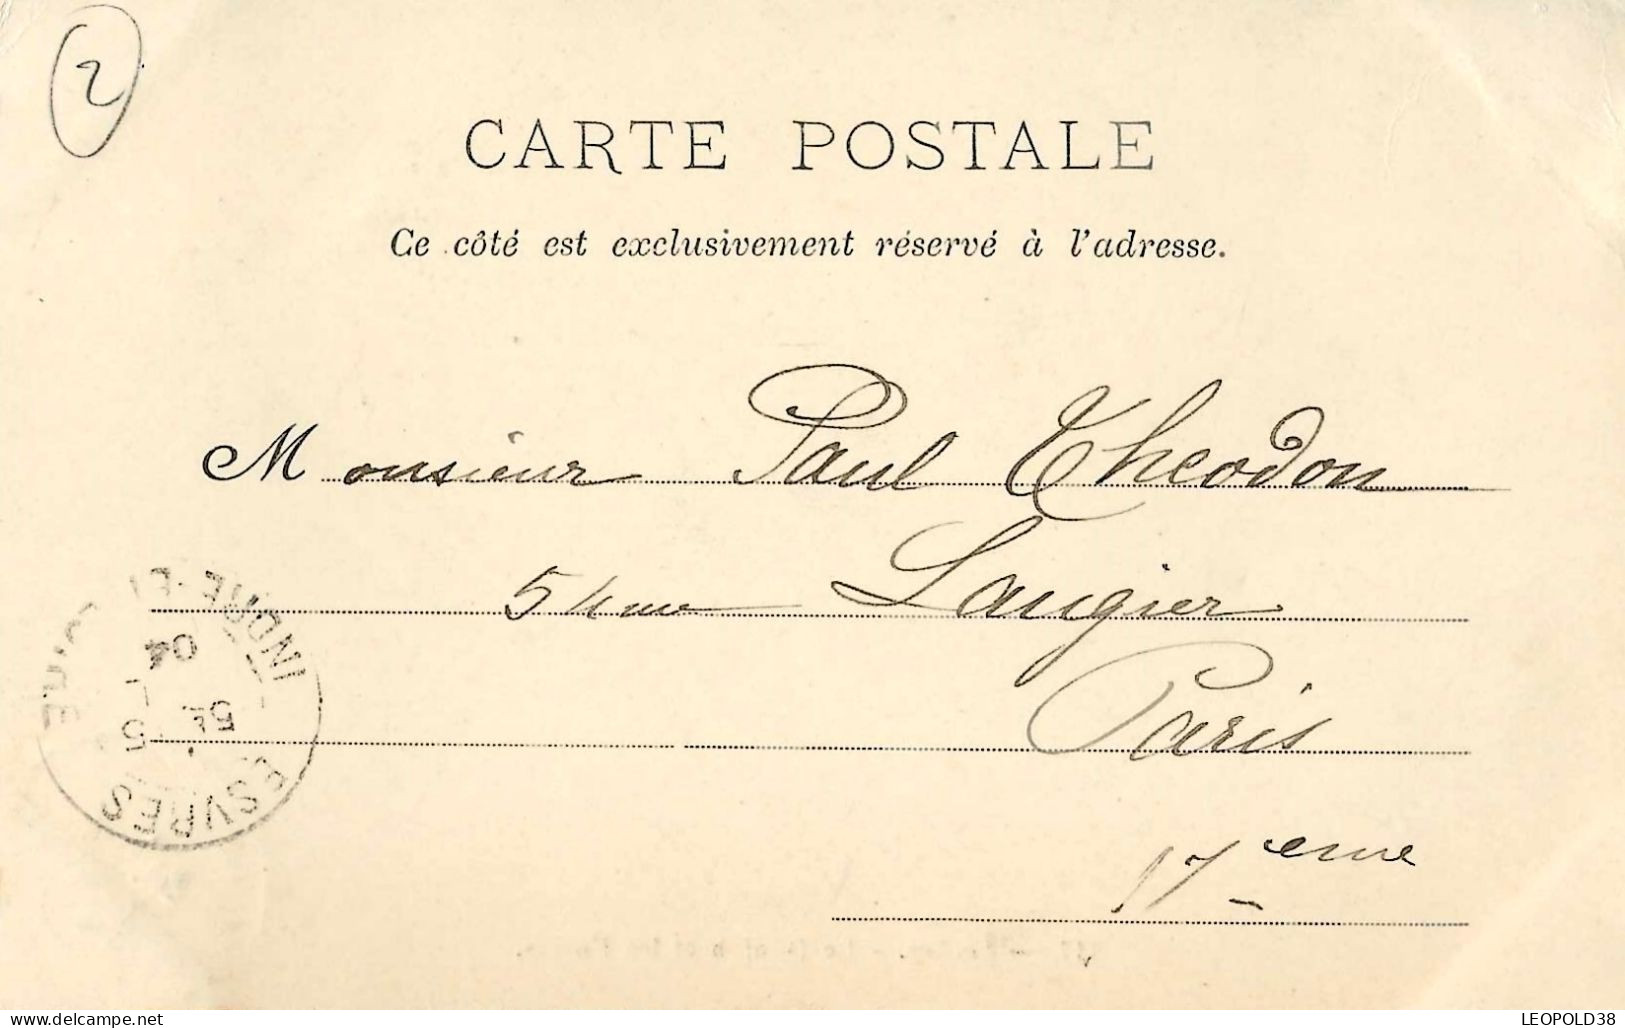 2
CARTE POSTALE
Ce côté est exclusivement réservé à l'adresse.
Monsieur Paul Theodon
54 rue Laugier
Paris
17eme
INDRE-ET-LOIRE
04
5
5E
ESVRES
www.delcampe.net
LEOPOLD38